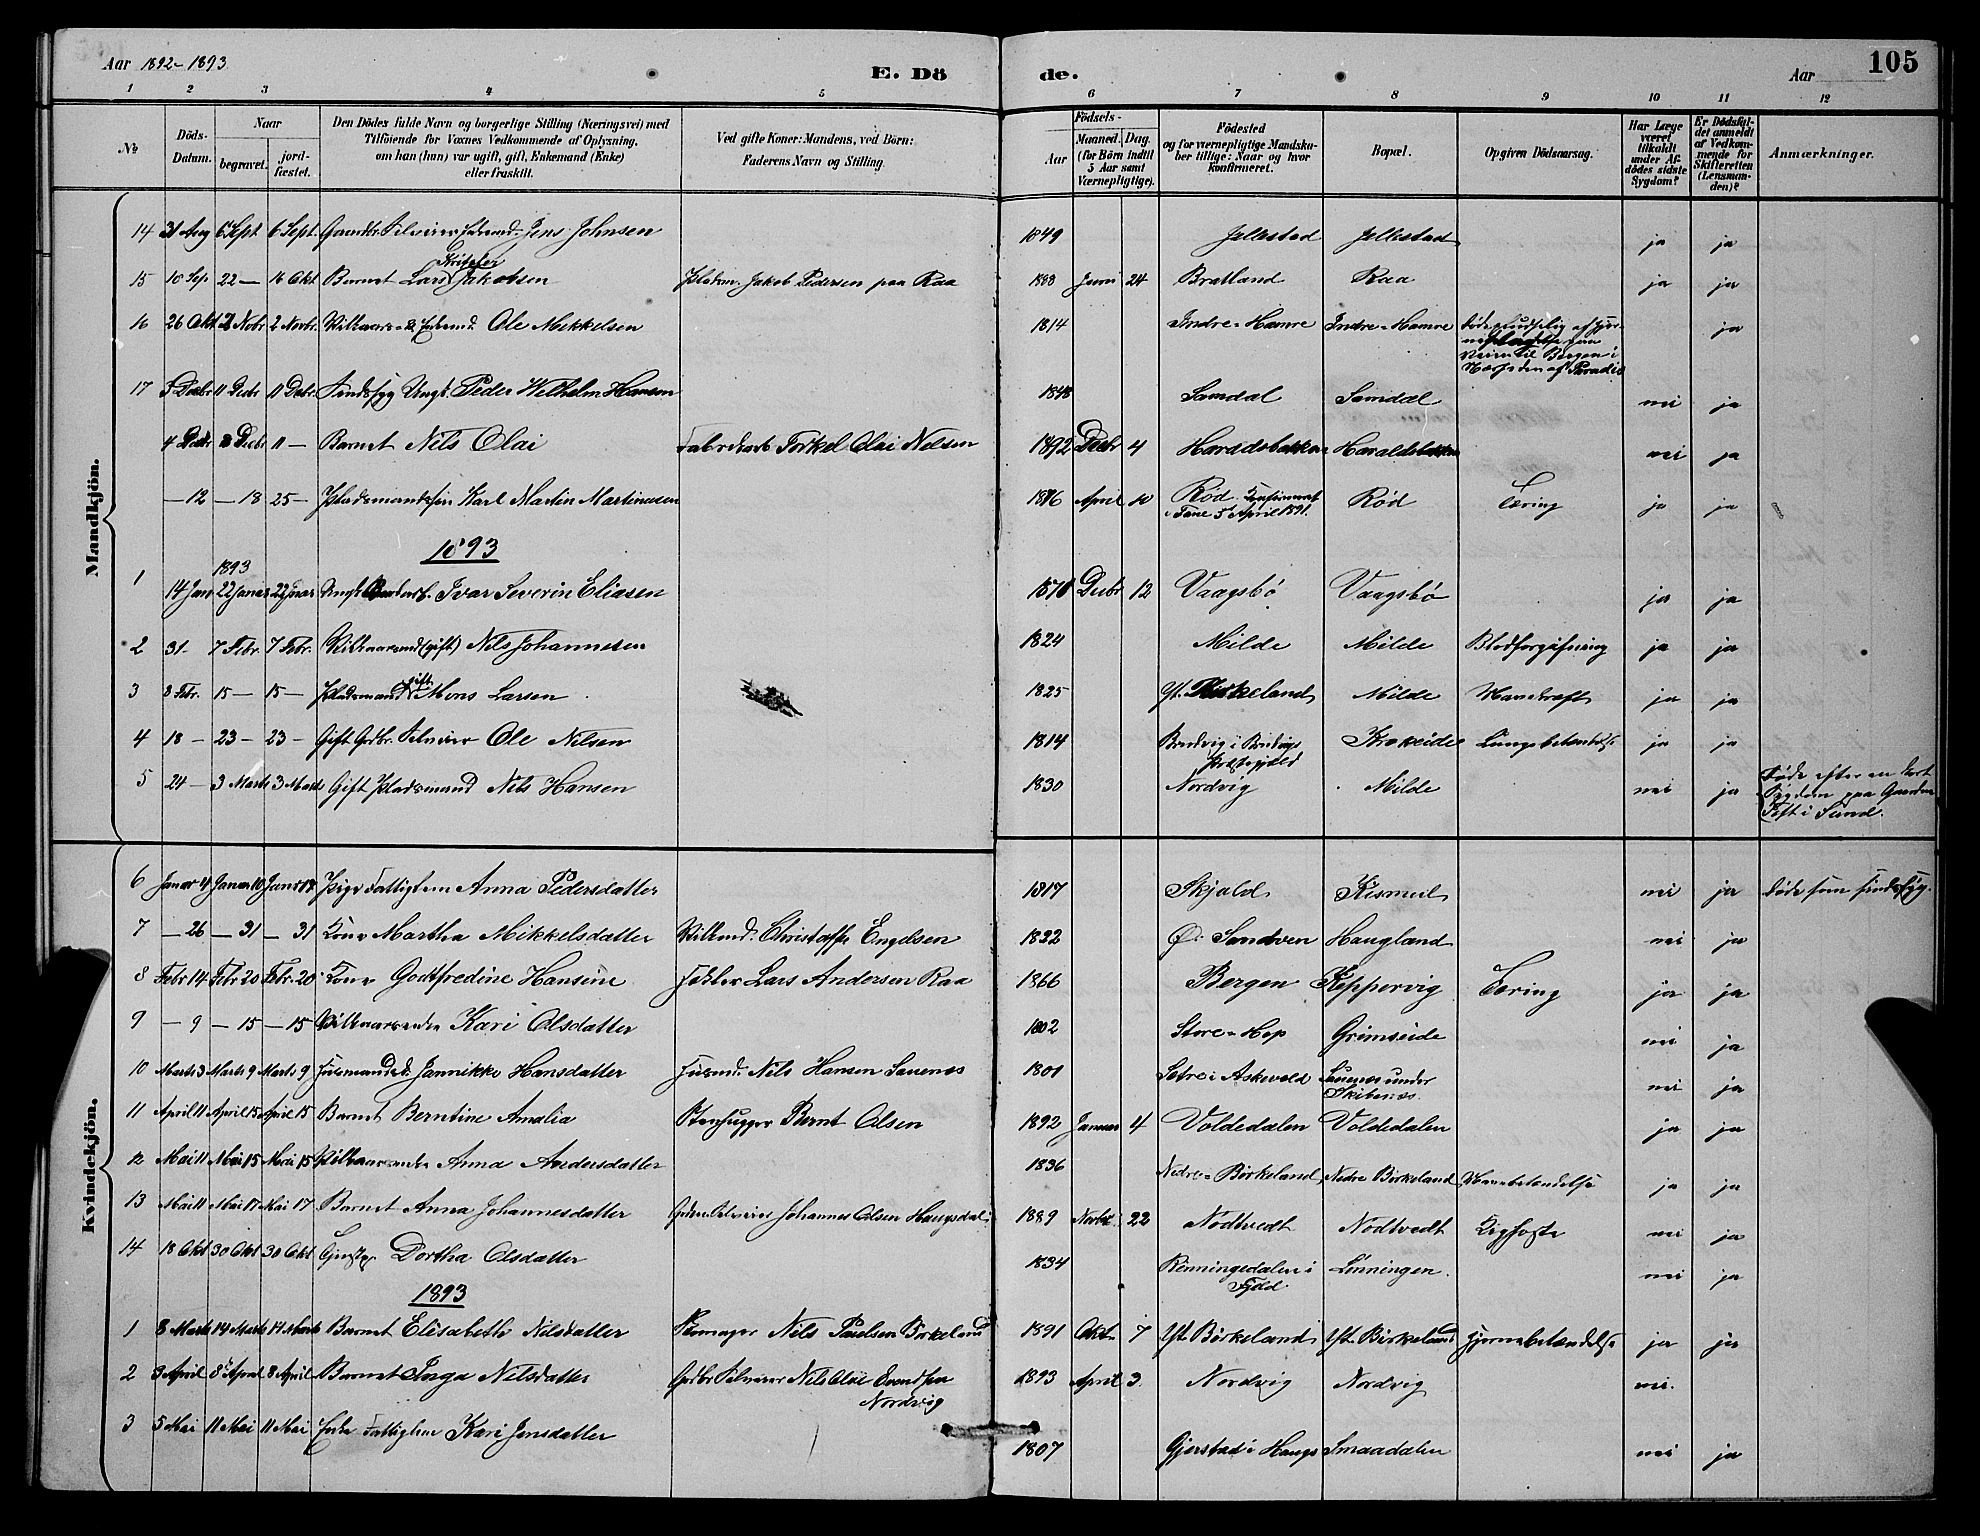 Aar 1892-1893
E. Dö
de.
Aar
105
1 2 3 4 5 6 7 8 9 10 11 12
No
Döds-Datum.
Naar
begravet.
jord-fæstet.
Den Dödes fulde Navn og borgerlige Stilling (Næringsvei) med
Tilföiende for Voxnes Vedkommende af Oplysning,
om han (hun) var ugift, gift, Enkemand (Enke)
eller fraskilt.
Ved gifte Koner: Mandens, ved Börn:
Faderens Navn og Stilling.
Födsels-
Aar
Maaned.
Dag.
(for Börn indtil
5 Aar samt
Værnepligtige).
Födested
og for værnepligtige Mandska-
ber tillige: Naar og hvor
konfirmeret.
Bopæl.
Opgiven Dödsaarsag.
Har Læge
været
tilkaldt
under Af-
dödes sidste
Sygdom?
Er Dødsfal-
det anmeldt
af Vedkom-
mende for
Skifteretten
(Lensman-
den)?
Anmærkninger.
Mandkjön.
14 31 Aug 6 Sept 6 Sept. Jens Johnsen 1849 Jellestad Jellestad ja ja
15 10 Sep. 22 — 16 Okt Barnet Lars Kristofer Jakobsen Pladsm. Jakob Pedersen paa Raa Juni 24 Bratland Raa ja ja
16 26 Okt 2 Nobr 2 Novbr. Ole Mikkelsen 1814 Indre-Hamre Indre-Hamre ja
Veien til Bergen i
Nærheden af Paradis
17 5 Decbr 11 Decbr 11 Decbr. Sindssyg Ungk. Peder Wilhelm Hansen 1848 Samdal Samdal nei ja
4 Decbr Decbr 11 — Barnet Nils Olai Torkel Olai Nilsen 1892 Decbr 4 Haraldsbakken Haraldsbakken nei ja
— 12 — 18 25 — Pladsmandssøn Karl Martin Martinusen 1876 April 10 Rød. Konfirmeret
i Fane 5te April 1891. Rød Tæring ja ja
1893
1893
1 14 Jan 22 Januar 22 Januar Ungk. Ivar Severin Eliasen Decbr 12 Vaagsbø Vaagsbø ja ja
2 31. 7 Febr. 7 Febr. Vilkaarsmd (gift) Nils Johannesen 1824 Milde Milde Blodforgiftning ja ja
3 8 Febr. 15 — 15 — Pladsmand gift Mons Larsen 1825 Yt. Birkeland Milde Mavekræft ja ja
4 18 — 23 — 23 — Gift Gdbr. Selveier Ole Nilsen 1814 Bredvig i
Præstegjeld Krokeide Lungebetændelse ja ja
5 24 — 3 Marts 3 Marts Gift Pladsmand Nils Hansen 1830 Nordvig Milde nei ja Døde efter en kort
Sygdom paa Gaarden
Toft i Sund.
Kvindekjön.
6 Januar 4 Januar 10 Januar Pige Fattiglem Anna Pedersdatter 1817 Skjold Kismul nei ja Døde som sindssyg.
7 — 26 — 31 — 31 Kone Martha Mikkelsdatter Vilkmd. Christoffer Engelsen 1832 Ø. Sandven Haugland nei ja
8 Febr 14 Febr 20 Febr. 20 Kone Godtfredine Hansine Lars Andersen Raa 1866 Bergen Keppervig Tæring ja ja
9 — 9 — 15 — 15 Vilkaarsenke Kari Olsdatter 1802 Store-Hop Grimseide nei ja
10 Marts 3 Marts 9 Marts 9 Jannikke Hansdatter Nils Hansen Sauenes 1801 Setre i Askevold Sauenes under
Skibenæs. nei ja
11 April 11 April 15 April 15 Barnet Berntine Amalia Stenhugger Bernt Olsen 1892 Januar 4 Voldedalen Voldedalen ja ja
12 Mai 11 Mai 15 Mai 15 Vilkaarsenke Anna Andersdatter 1836 Nedre-Birkeland Nedre Birkeland Mavebetændelse ja ja
13 Mai 11 Mai 17 Mai 17 Barnet Anna Johannesdatter Selveier Johannes Olsen Haugsdal 1889 Novbr. 22 Nødtvedt Nødtvedt Kighoste nei ja
14 18 Okt 30 Okt 30 Okt Dortha Olsdatter 1834 Rønningedalen i
Fjeld Lønningen. nei ja
1893
1 8 Marts 14 Marts 14 Marts Barnet Elisabeth Nilsdatter Skomager Nils Paulsen Birkeland 1891 Okt. 7 Yt. Birkeland Yt. Birkeland Hjernebetændelse ja ja
2 3 April 8 April 8 April Barnet Inga Nilsdatter Gdbr. Selveier Nils Olai
Nordvig 1893 April 3. Nordvig Nordvig nei.
3 5 Mai 11 Mai 11 Mai Enke Fattiglem Kari Jensdatter 1807 Gjerstad i Haugs Smaadalen nei ja